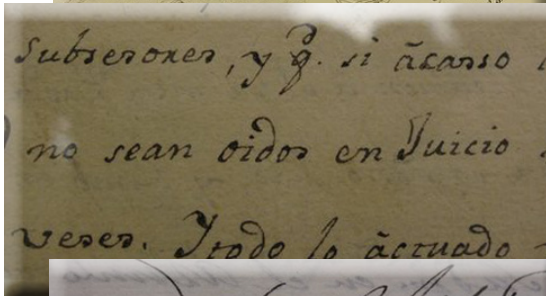 Subsesores, y q. si ācasso
no sean oidos en Juicio
veses. Y todo lo āctuado